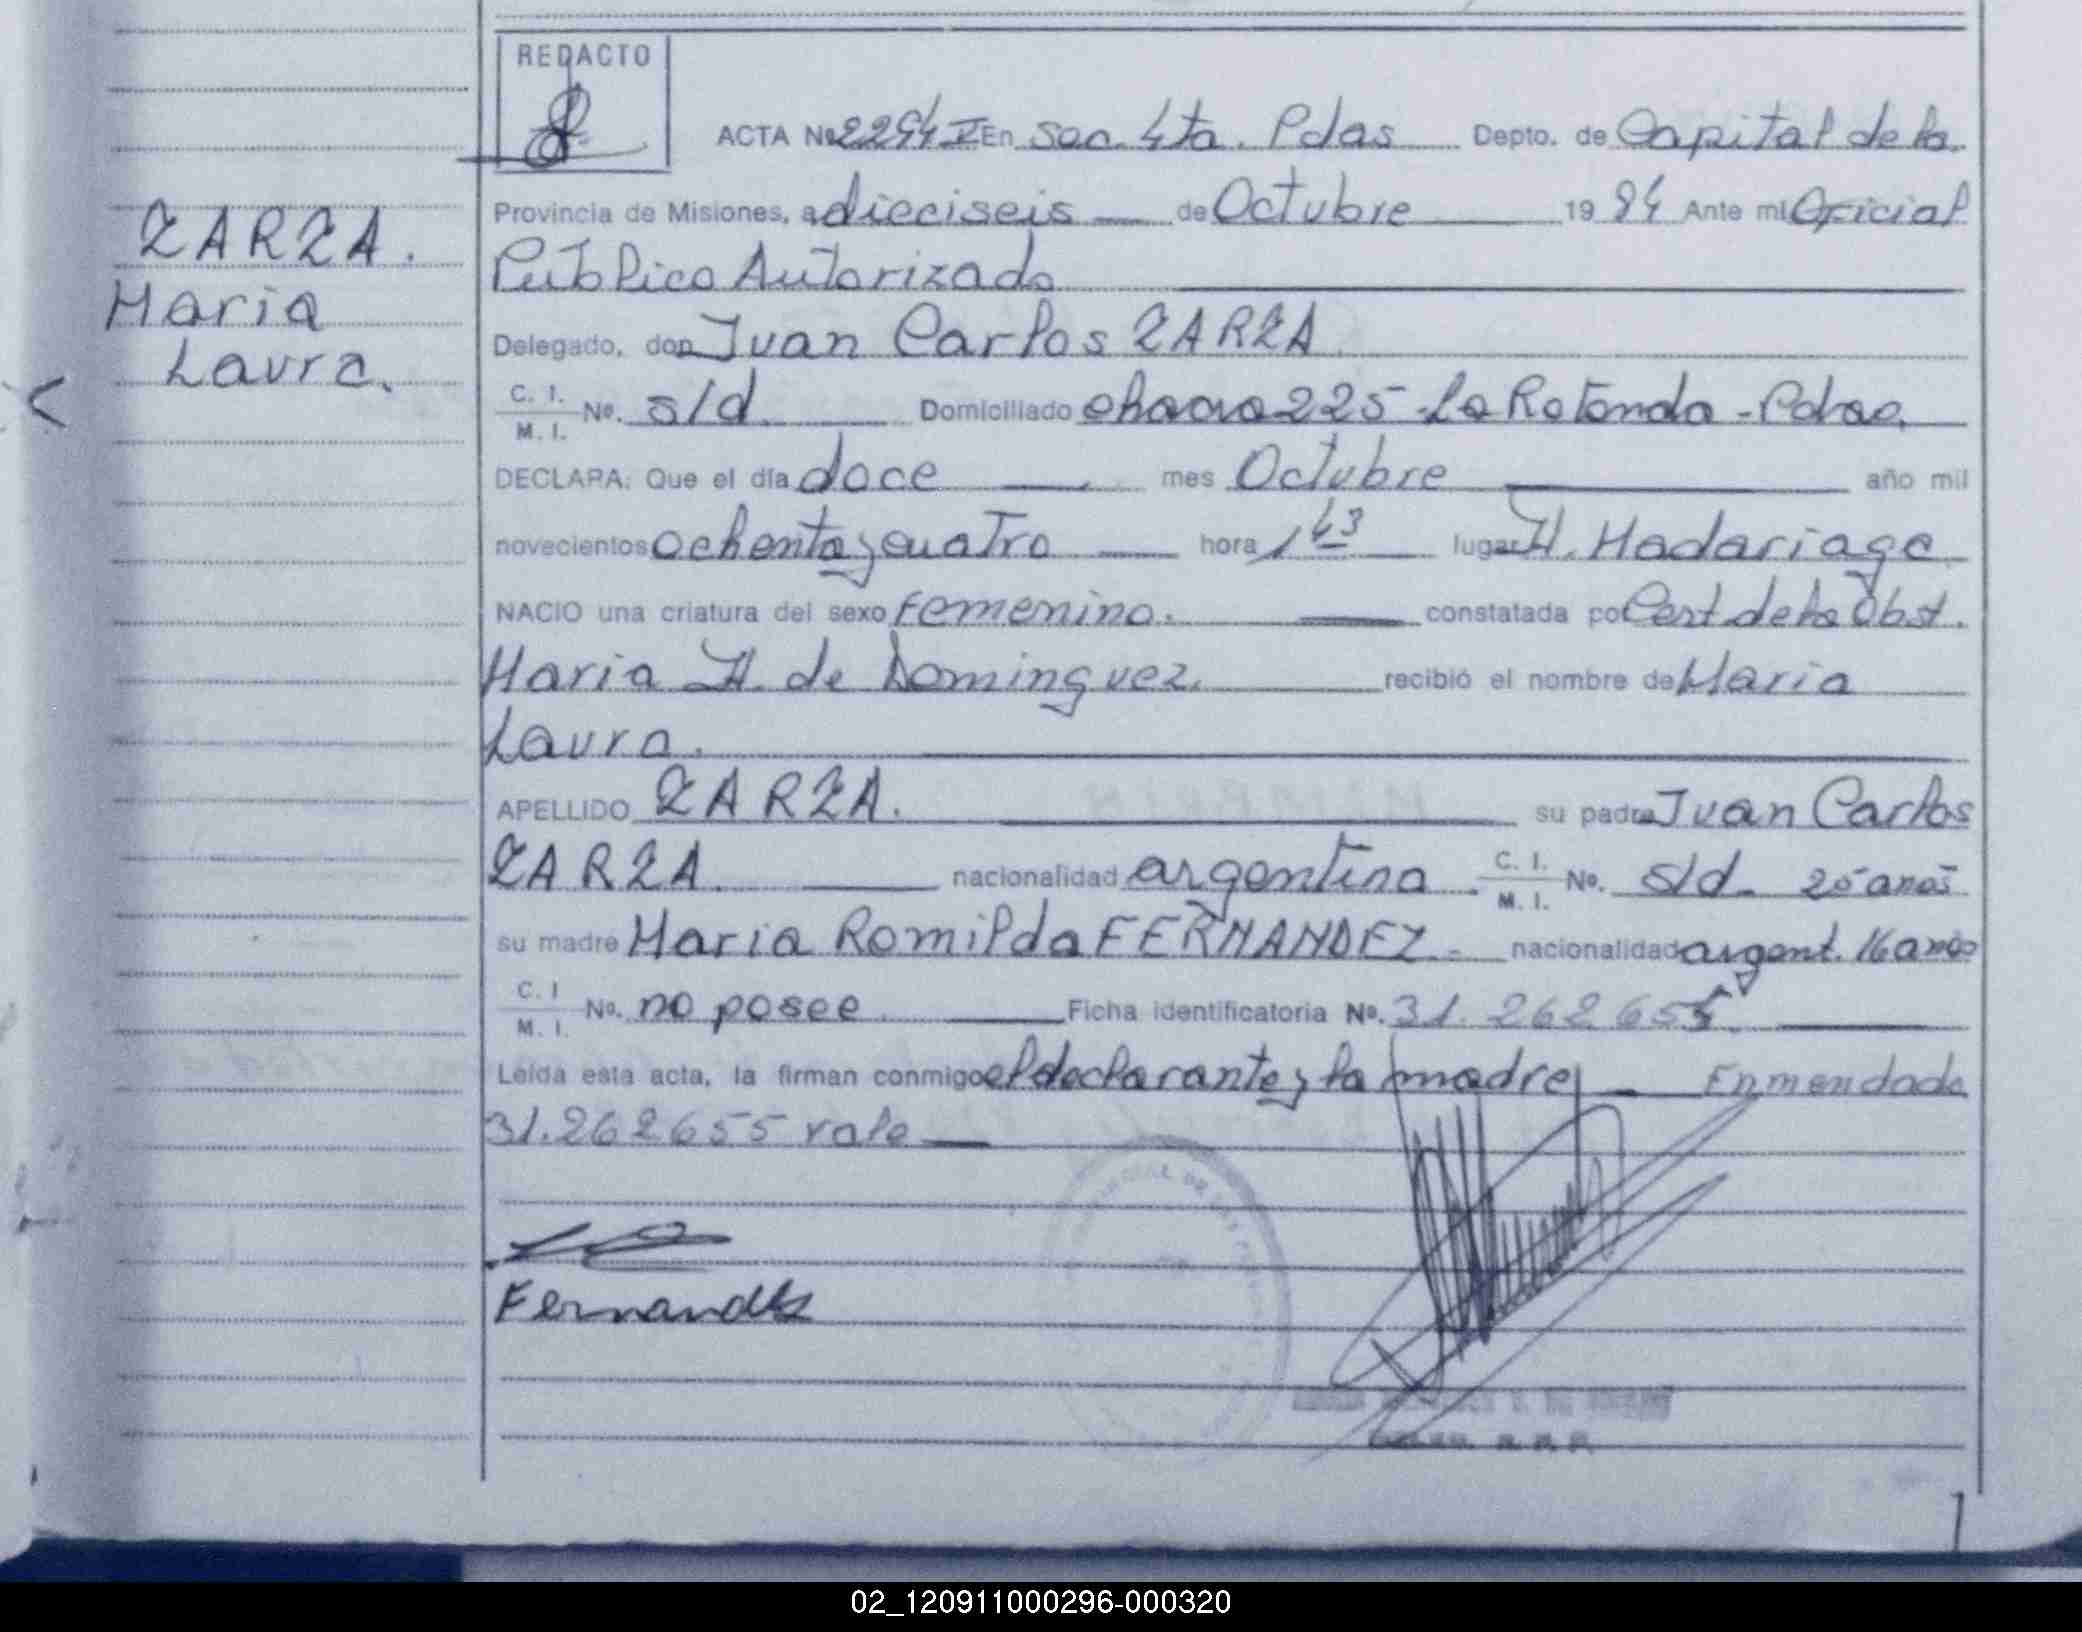 REDACTO
ACTA Nº 2294 V En Sec. 4ta. Pdas Depto. de Capital de la
Provincia de Misiones, a dieciseis de Octubre 1984 Ante mi Oficial
Publico Autorizado
Delegado, don Juan Carlos ZARZA
C. I. M. I. Nº. s/d. Domiciliado chacra 225 - La Rotonda - Pdas.
DECLARA: Que el día doce mes Octubre año mil
novecientos ochenta y cuatro hora 1 43 lugar H. Madariaga
NACIO una criatura del sexo femenino. constatada por Cert de la Obst.
Maria H. de Dominguez. recibió el nombre de Maria
Laura.
APELLIDO ZARZA. su padre Juan Carlos
ZARZA. nacionalidad argentina C. I. M. I. Nº. s/d. 25 anos
su madre Maria Romilda FERNANDEZ. nacionalidad argent. 16 anos
C. I M. I. Nº. no posee Ficha identificatoria Nº. 31.262655
Leída esta acta, la firman conmigo el declarante y la madre Enmendado
31.262655 vale
Fernandez
ZARZA.
Maria
Laura.
02_120911000296-000320